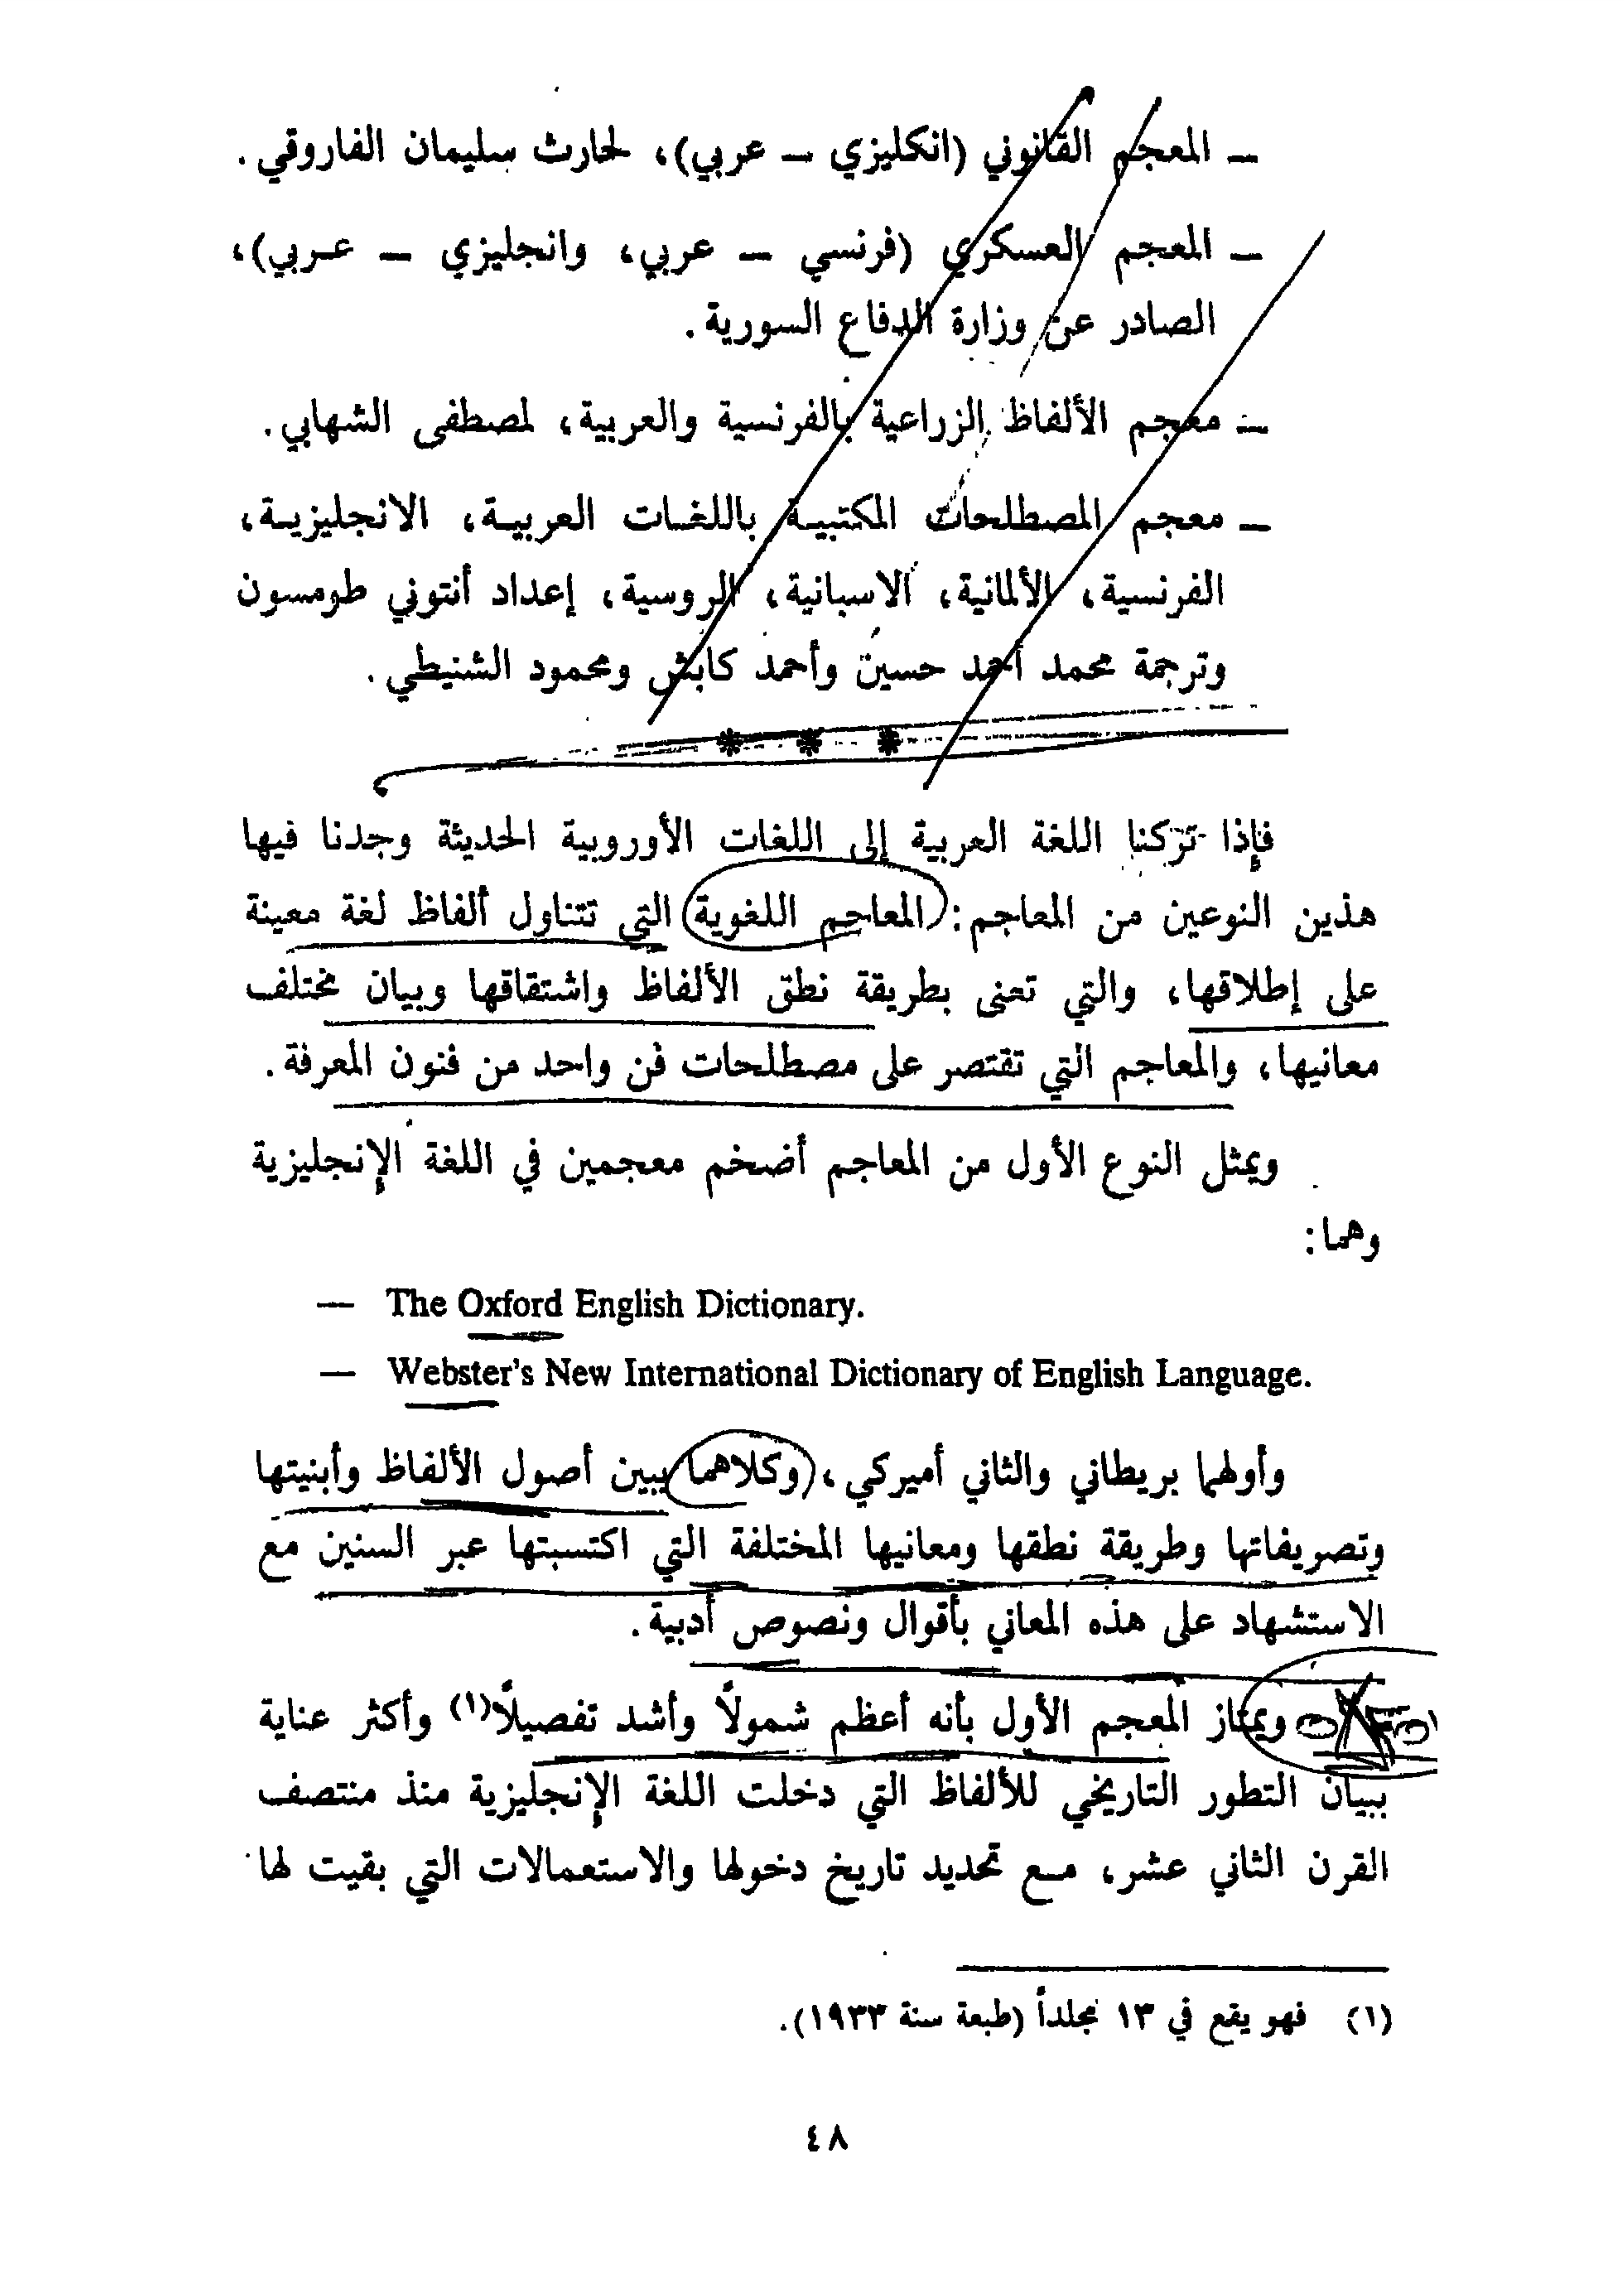 — المعجم القانوني (انكليزي — عربي)، لحارث سليمان الفاروقي.
— المعجم العسكري (فرنسي — عربي، وانجليزي — عربي)،
الصادر عن وزارة الدفاع السورية.
— معجم الألفاظ الزراعية بالفرنسية والعربية، لمصطفى الشهابي.
— معجم المصطلحات المكتبية باللغات العربية، الانجليزية،
الفرنسية، الألمانية، الاسبانية، الروسية، إعداد أنتوني طومسون
وترجمة محمد أحمد حسين وأحمد كابش ومحمود الشنيطي.
* * *
فإذا تركنا اللغة العربية إلى اللغات الأوروبية الحديثة وجدنا فيها
هذين النوعين من المعاجم: المعاجم اللغوية التي تتناول ألفاظ لغة معينة
على إطلاقها، والتي تعنى بطريقة نطق الألفاظ واشتقاقها وبيان مختلف
معانيها، والمعاجم التي تقتصر على مصطلحات فن واحد من فنون المعرفة.
ويمثل النوع الأول من المعاجم أضخم معجمين في اللغة الإنجليزية
وهما:
— The Oxford English Dictionary.
— Webster's New International Dictionary of English Language.
وأولهما بريطاني والثاني أميركي، وكلاهما يبين أصول الألفاظ وأبنيتها
وتصريفاتها وطريقة نطقها ومعانيها المختلفة التي اكتسبتها عبر السنين مع
الاستشهاد على هذه المعاني بأقوال ونصوص أدبية.
ويمتاز المعجم الأول بأنه أعظم شمولاً وأشد تفصيلاً(١) وأكثر عناية
ببيان التطور التاريخي للألفاظ التي دخلت اللغة الإنجليزية منذ منتصف
القرن الثاني عشر، مع تحديد تاريخ دخولها والاستعمالات التي بقيت لها
(١) فهو يقع في ١٣ مجلداً (طبعة سنة ١٩٣٣).
٤٨